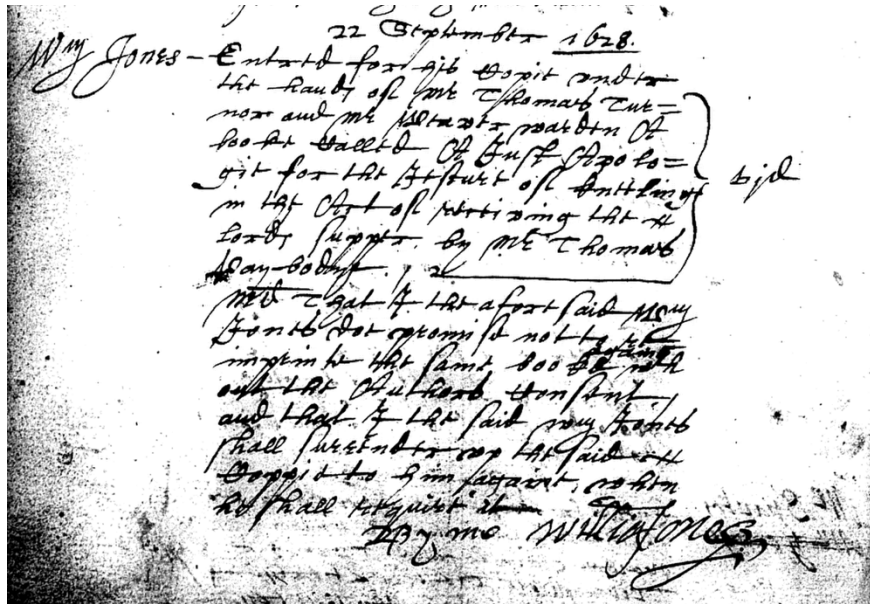 22 September 1628.
Wm Jones – Entred for his Copie vnder
the hands of Mr Thomas Tur=
nor and Mr Weaver warden A
booke Called A Iust Apolo=
gie for the Iesture of kneeling
in the Act of receiving the
Lords supper. by Mr Thomas vjd
Pay-bodye.
Md That I the afore said Wm
Iones doe promise not to re
imprinte the same booke againe with
out the Authors Consent,
and that I the said Wm Iones
shall surrender vp the said
Coppie to him againe, when
he shall require it
By me William Jones